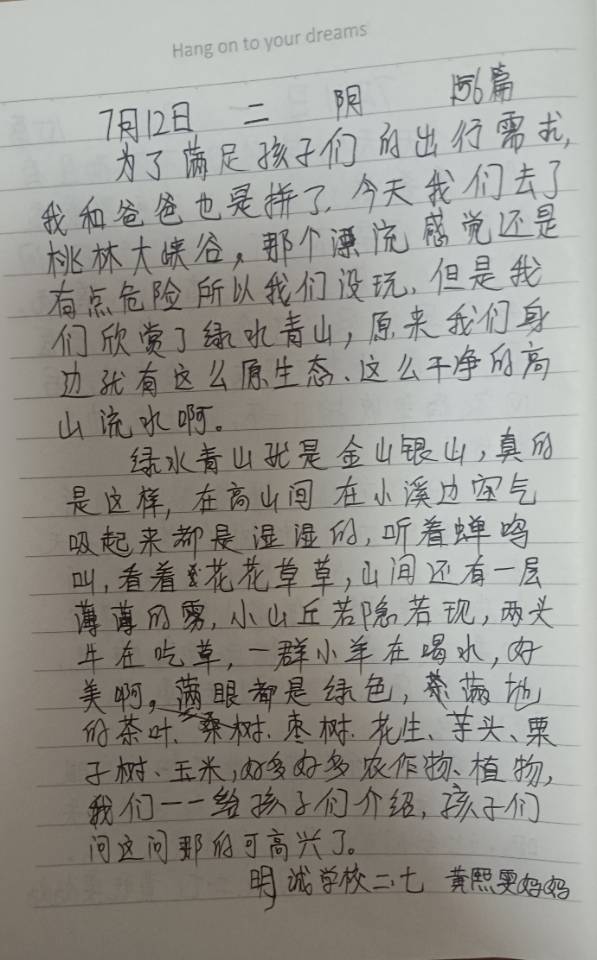 Hang on to your dreams
7月12日 二 阴 156篇
为了满足孩子们的出行需求,
我和爸爸也是拼了,今天我们去了
桃林大峡谷,那个漂流感觉还是
有点危险所以我们没玩,但是我
们欣赏了绿水青山,原来我们身
边就有这么原生态、这么干净的高
山流水啊。
绿水青山就是金山银山,真的
是这样,在高山间在小溪边空气
吸起来都是湿湿的,听着蝉鸣
叫,看着花花草草,山间还有一层
薄薄的雾,小山丘若隐若现,两头
牛在吃草,一群小羊在喝水,好
美啊,满眼都是绿色,满地
的茶叶、桑树、枣树、花生、芋头、栗
子树、玉米,好多好多农作物、植物,
我们一一给孩子们介绍,孩子们
问这问那的可高兴了。
明诚学校二.七 黄熙雯妈妈